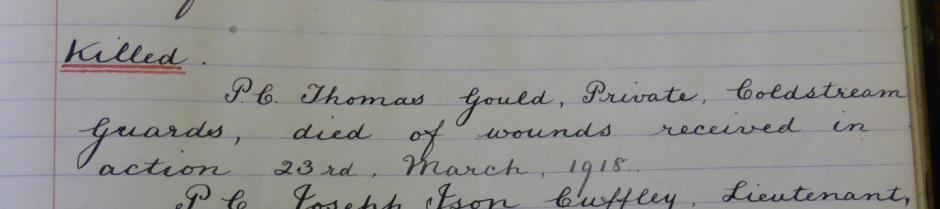 Killed.
P.C. Thomas Gould, Private, Coldstream
Guards, died of wounds received in
action 23rd. March, 1918.
P.C. Joseph Ison Cuffley, Lieutenant,